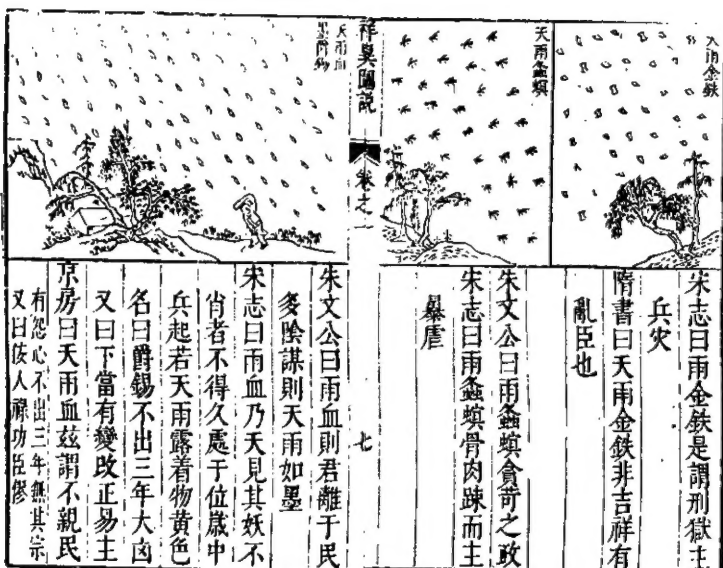 天雨金鉄
宋志曰雨金鉄是謂刑獄主
兵灾
隋書曰天雨金鉄非吉祥有
亂臣也
天雨螽螟
朱文公曰雨螽螟貪苛之政
宋志曰雨螽螟骨肉踈而主
暴虐
祥異圖說
卷之一
七
天雨血
墨爵錫
朱文公曰雨血則君離于民
多陰謀則天雨如墨
宋志曰雨血乃天見其妖不
肖者不得久處于位歲中
兵起若天雨露着物黄色
名曰爵錫不出三年大凶
又曰下當有變改正易主
京房曰天雨血兹謂不親民
有怨心不出三年無其宗
又曰佞人祿功臣僇